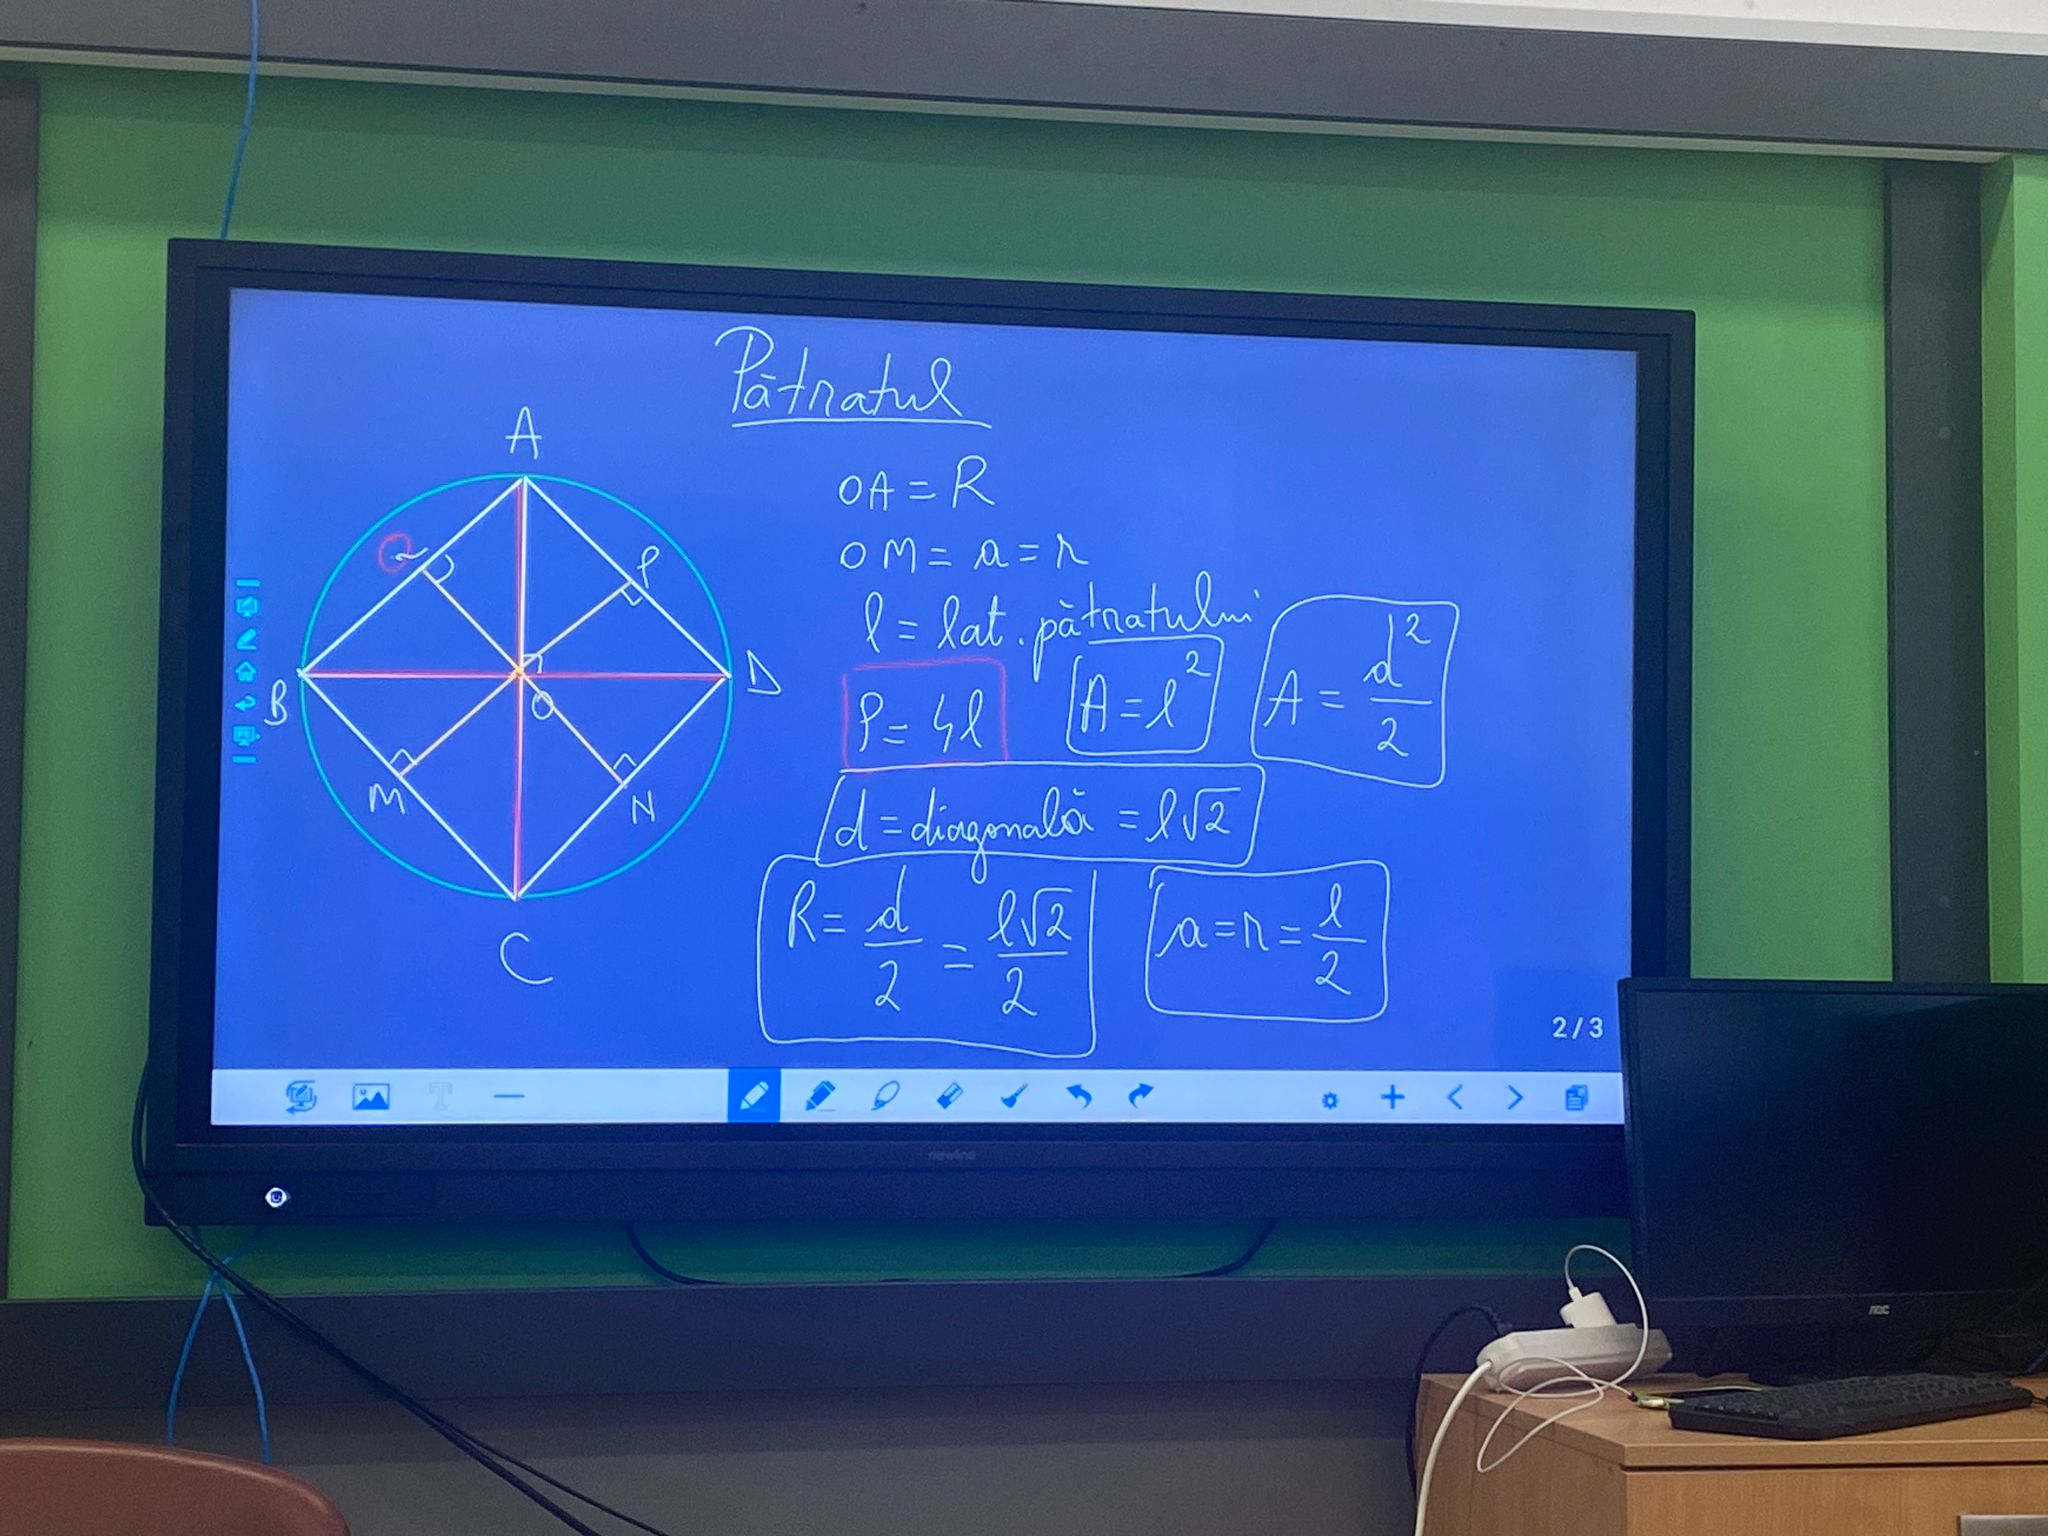 Pătratul
A
OA = R
Q
P
OM = a = r
l = lat. pătratului
B
D
O
P = 4l
A = l²
A = d²/2
M
N
d = diagonală = l√2
R = d/2 = l√2/2
a = r = l/2
C
2/3
newline
AOC